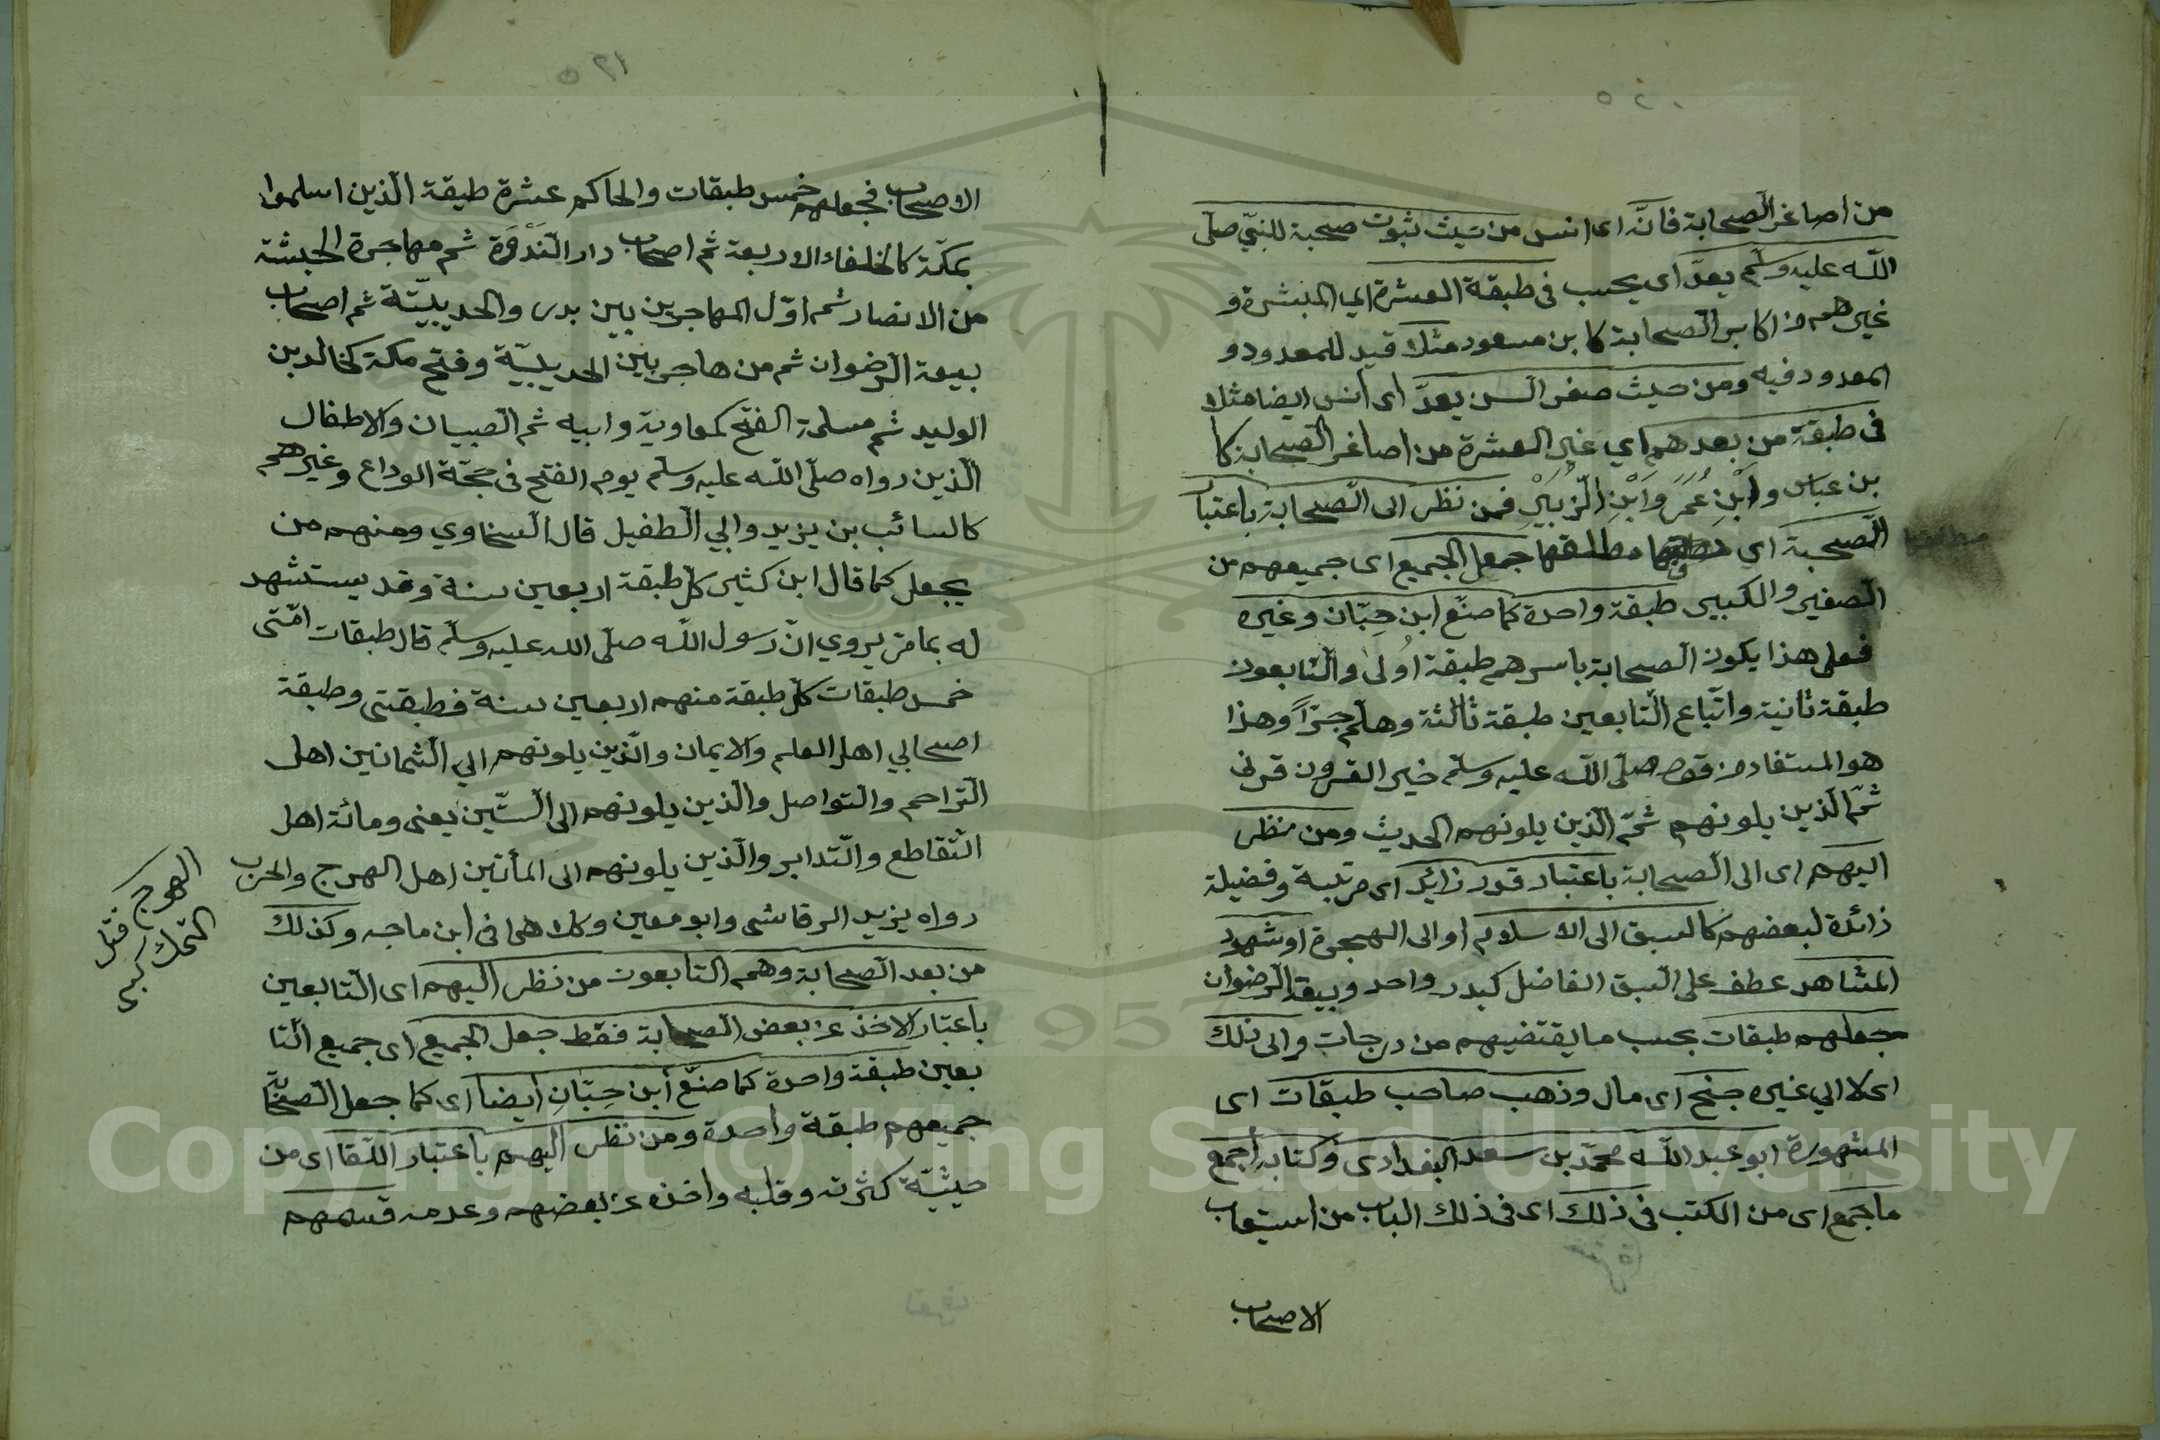 من اصاغر الصحابة فانّه اى انس من حيث ثبوت صحبة للنبيّ صلّى
اللّه عليه وسلّم يعدّ اى يحسب فى طبقة العشرة اي المبشرة و
غيرهم من اكابر الصحابة كابن مسعود مثلا قيد للمعدود و
المعدود فيه ومن حيث صغر السن يعدّ اى انس ايضا مثلا
فى طبقة من بعدهم اي غير العشرة من اصاغر الصحابة كا
بن عباس وابْنِ عُمَرَ وَابْنِ الزُبَيْرِ فمن نظر الى الصحابة باعتبار
الصحبة اى مطلقها جعل الجميع اى جميعهم من
الصغير والكبير طبقة واحدة كما صنع ابن حِبّان وغيره
فعلى هذا يكون الصحابة باسرهم طبقة اُولى والتابعون
طبقة ثانية واتّباع التابعين طبقة ثالثة وهلم جرّاً وهذا
هو المستفاد من قوله صلّى اللّه عليه وسلّم خير القرون قرنى
ثمّ الذين يلونهم ثمّ الّذين يلونهم الحديث ومن نظر
اليهم اى الى الصحابة باعتبار قدر زائد اى مرتبة وفضيلة
زائدة لبعضهم كالسبق الى الاسلام او الى الهجرة او شهود
المشاهد عطف على السبق الفاضل كبدر واحد وبيعة الرضوان
جعلهم طبقات بحسب ما يقتضيهم من درجات والى ذلك
اى لا الي غيره جنح اى مال وذهب صاحب طبقات اى
المشهورة ابو عبد اللّه محمّد بن سعد البغدادى وكتابه أجمع
ما جمع اى من الكتب فى ذلك اى فى ذلك الباب من استيعاب
الاصحاب
الاصحاب فجعلهم خمس طبقات والحاكم عشرة طبقة الّذين اسلموا
بمكّة كالخلفاء الاربعة ثم اصحاب دار النَدْوَة ثم مهاجرة الحبشة
من الانصار ثم اوّل المهاجرين بين بدر والحديبيّة ثم اصحاب
بيعة الرضوان ثم من هاجر بين الحديبيّة وفتح مكة كخالد بن
الوليد ثم مسلمة الفتح كمعاوية وابيه ثم الصبيان والاطفال
الّذين رواه صلّى اللّه عليه وسلّم يوم الفتح فى حجّة الوداع وغيرهم
كالسائب بن يزيد وابي الطفيل قال السخاوي ومنهم من
يجعل كما قال ابن كثير كل طبقة اربعين سنة وقد يستشهد
له بما مرّ يروي انّ رسول اللّه صلّى الله عليه وسلّم قال طبقات امّتى
خمس طبقات كل طبقة منهم اربعين سنة فطبقتى وطبقة
اصحابي اهل العلم والايمان والّذين يلونهم الي الثمانين اهل
التراحم والتواصل والّذين يلونهم الى الستّين يعنى ومائة اهل
التقاطع والتدابر والّذين يلونهم الى المأتين اهل الهرج والحرب
رواه يزيد الرقاشى وابو معين وكلاهما فى ابن ماجه وكذلك
من بعد الصحابة وهم التابعون من نظر اليهم اى التابعين
باعتبار الاخذ عن بعض الصحابة فقط جعل الجميع اى جميع التا
بعين طبقة واحدة كما صنع ابن حِبّان ايضا اى كما جعل الصحابة
جميعهم طبقة واحدة ومن نظر اليهم باعتبار اللقا اى من
حيثيّة كثرته وقلته واخذه عن بعضهم وعدمه قسمهم
الهرج قتل